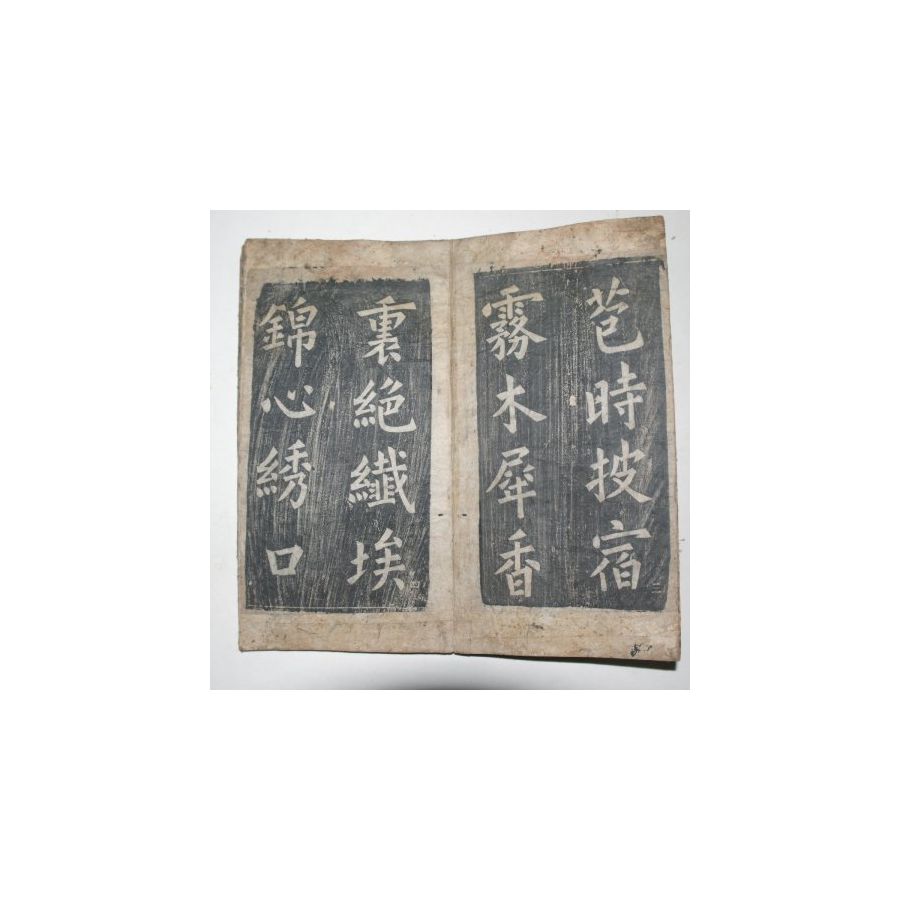 苞時披宿
霧木犀香
裏絶纖埃
錦心綉口